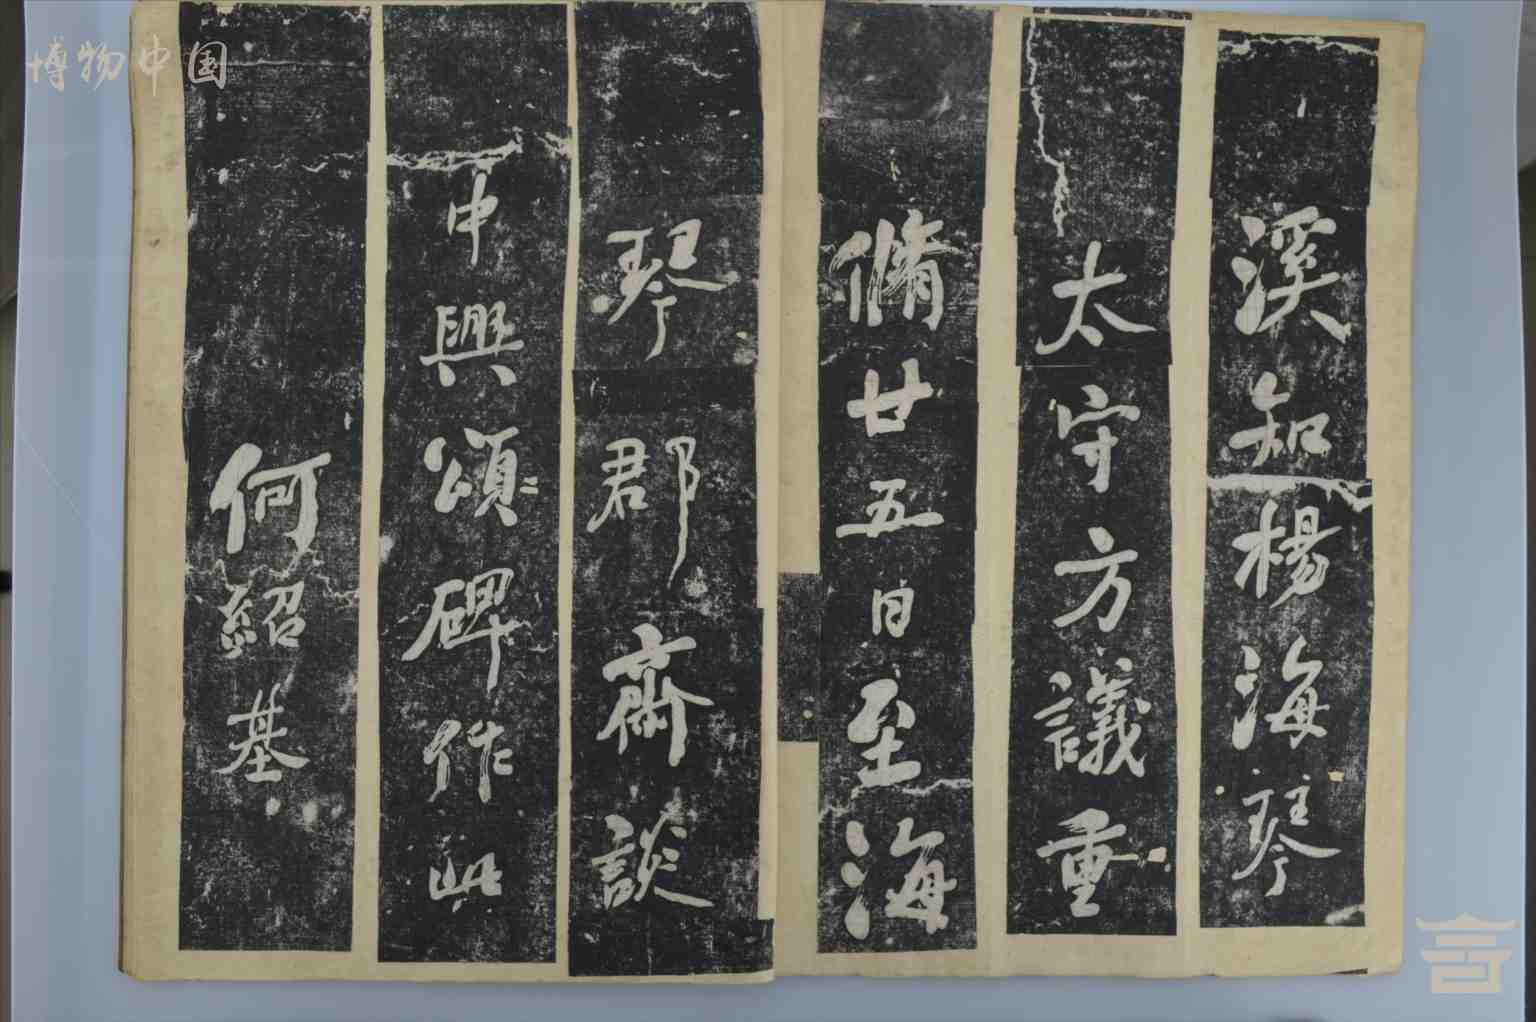 溪知楊海琴
太守方議重
脩廿五日至海
琴郡齋談
中興頌碑作此
何紹基
博物中国